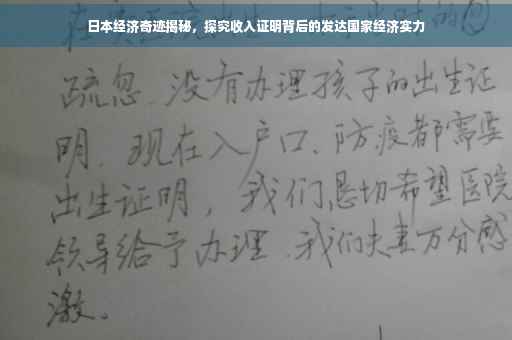 日本经济奇迹揭秘，探究收入证明背后的发达国家经济实力
疏忽、没有办理孩子的出生证
明、现在入户口、防疫都需要
出生证明，我们恳切希望医院
领导给予办理、我们夫妻万分感
激。